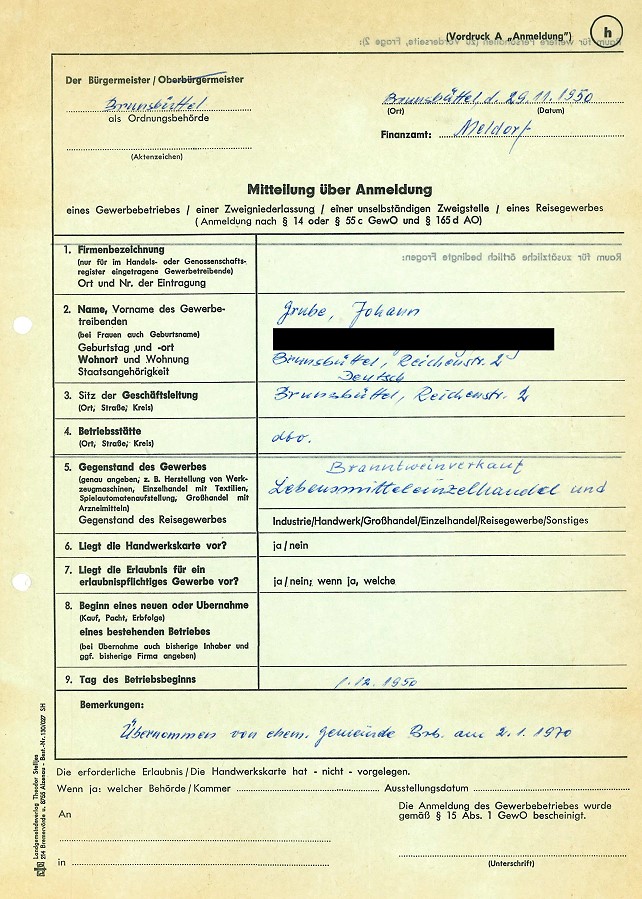 (Vordruck A „Anmeldung")
h
Raum für weitere Personalien (zu Vorderseite, Frage 2):
Der Bürgermeister / Oberbürgermeister
Brunsbüttel
als Ordnungsbehörde
(Aktenzeichen)
Brunsbüttel, d. 29.11.1950
(Ort) (Datum)
Finanzamt: Meldorf
Mitteilung über Anmeldung
eines Gewerbebetriebes / einer Zweigniederlassung / einer unselbständigen Zweigstelle / eines Reisegewerbes
(Anmeldung nach § 14 oder § 55 c GewO und § 165 d AO)
Raum für zusätzliche örtlich bedingte Fragen:
1. Firmenbezeichnung
(nur für im Handels- oder Genossenschafts-
register eingetragene Gewerbetreibende)
Ort und Nr. der Eintragung
2. Name, Vorname des Gewerbe-
treibenden
(bei Frauen auch Geburtsname)
Geburtstag und -ort
Wohnort und Wohnung
Staatsangehörigkeit
Grube, Johann
Brunsbüttel, Reichenstr. 2
Deutsch
3. Sitz der Geschäftsleitung
(Ort, Straße, Kreis)
Brunsbüttel, Reichenstr. 2
4. Betriebsstätte
(Ort, Straße, Kreis)
dto.
5. Gegenstand des Gewerbes
(genau angeben, z. B. Herstellung von Werk-
zeugmaschinen, Einzelhandel mit Textilien,
Spielautomatenaufstellung, Großhandel mit
Arzneimitteln)
Gegenstand des Reisegewerbes
Branntweinverkauf
Lebensmitteleinzelhandel und
Industrie/Handwerk/Großhandel/Einzelhandel/Reisegewerbe/Sonstiges
6. Liegt die Handwerkskarte vor?
ja / nein
7. Liegt die Erlaubnis für ein
erlaubnispflichtiges Gewerbe vor?
ja / nein; wenn ja, welche
8. Beginn eines neuen oder Übernahme
(Kauf, Pacht, Erbfolge)
eines bestehenden Betriebes
(bei Übernahme auch bisherige Inhaber und
ggf. bisherige Firma angeben)
9. Tag des Betriebsbeginns
1.12.1950
Bemerkungen:
Übernommen von ehem. Gemeinde Brb. am 2.1.1970
Die erforderliche Erlaubnis / Die Handwerkskarte hat - nicht - vorgelegen.
Wenn ja: welcher Behörde / Kammer Ausstellungsdatum
An
in
Die Anmeldung des Gewerbebetriebes wurde
gemäß § 15 Abs. 1 GewO bescheinigt.
(Unterschrift)
Landgemeindeverlag Theodor Stelljes
214 Bremervörde u. 8755 Alzenau - Best.-Nr. 130/027 SH